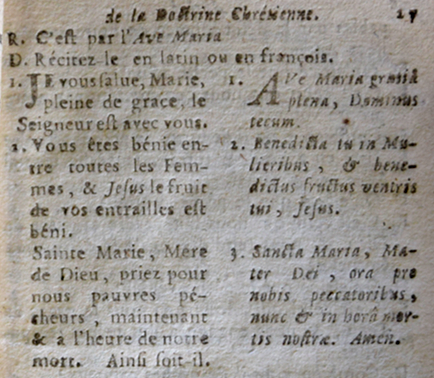 de la Doctrine Chrétienne.
R. C'est par l'Ave Maria
D. Récitez-le en latin ou en françois.
1. JE vous salue, Marie,
pleine de grace, le
Seigneur est avec vous.
2. Vous êtes bénie en-
tre toutes les Fem-
mes, & Jesus le fruit
de vos entrailles est
béni.
Sainte Marie, Mere
de Dieu, priez pour
nous pauvres pé-
cheurs, maintenant
& à l'heure de notre
mort. Ainsi soit-il.
1. AVe Maria gratiâ
plena, Dominus
tecum.
2. Benedicta tu in Mu-
lieribus, & bene-
dictus fructus ventris
tui, Jesus.
3. Sancta Maria, Ma-
ter Dei, ora pro
nobis peccatoribus,
nunc & in horâ mor-
tis nostræ. Amen.